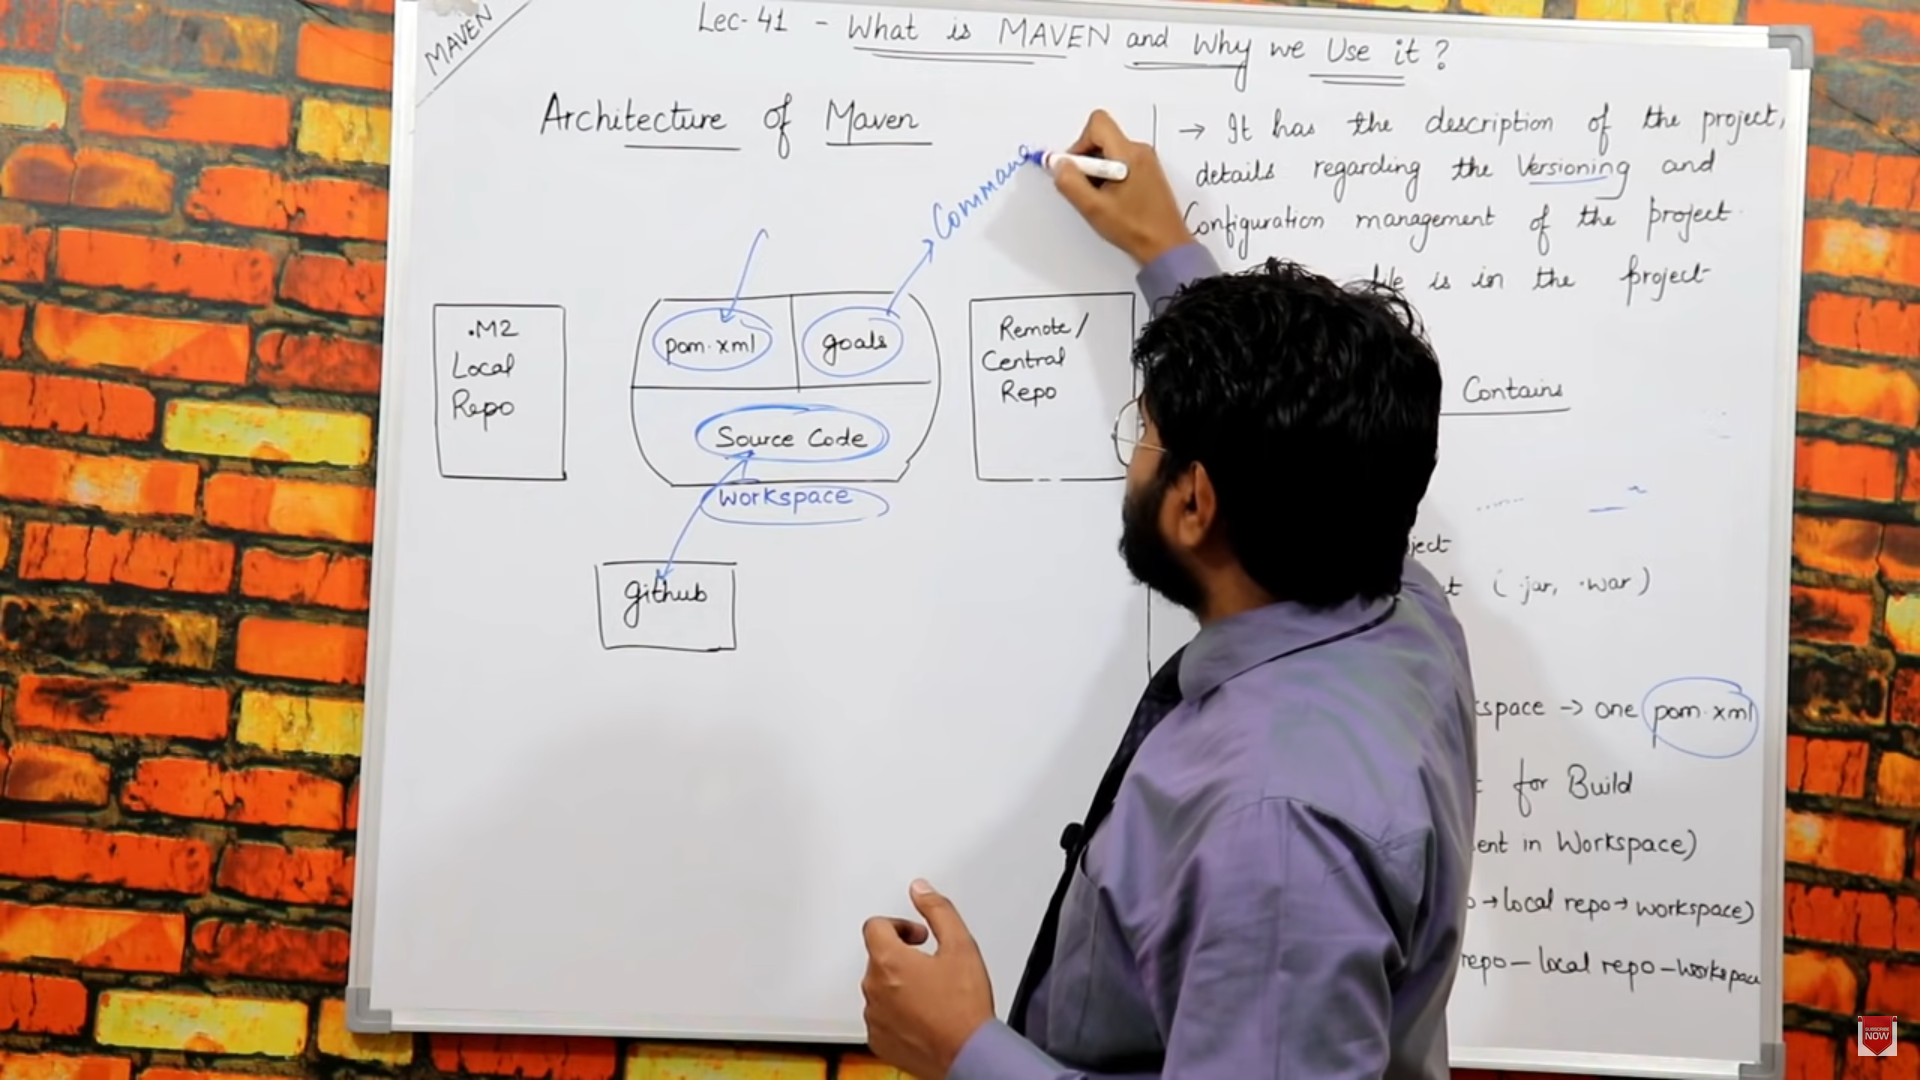 MAVEN
Lec-41 - What is MAVEN and Why we Use it?
Architecture of Maven
Comman
.M2
Local
Repo
pom.xml
goals
Source Code
Workspace
github
Remote/
Central
Repo
→ It has the description of the project,
details regarding the Versioning and
Configuration management of the project.
file is in the project
Contains
ject
t (.jar, .war)
kspace → one pom.xml
for Build
ent in Workspace)
o → local repo → workspace)
repo - local repo - workspace
SUBSCRIBE
NOW